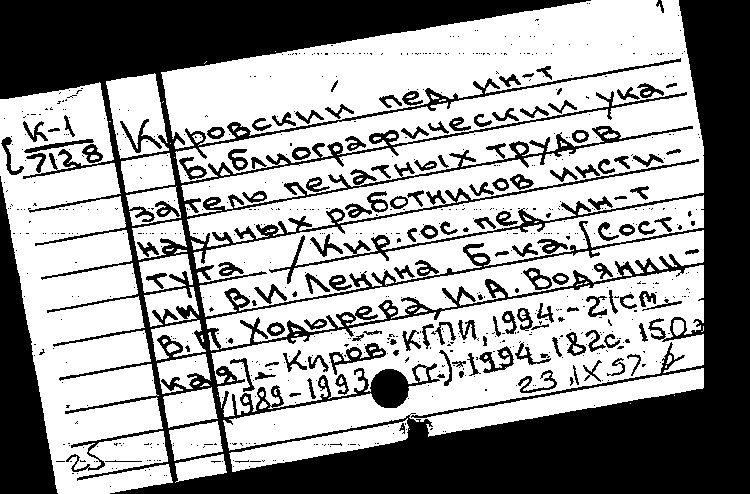 1
К-1
7128
Кировский пед. ин-т
Библиографический ука-
затель печатных трудов
научных работников инсти-
тута / Кир. гос. пед. ин-т
им. В.И. Ленина. Б-ка; [сост.:
В.П. Ходырева, И.А. Водяниц-
кая]. - Киров: КГПИ, 1994. - 21см.
(1989-1993 гг.). 1994. 182с. 150э
23.IX 97.
25